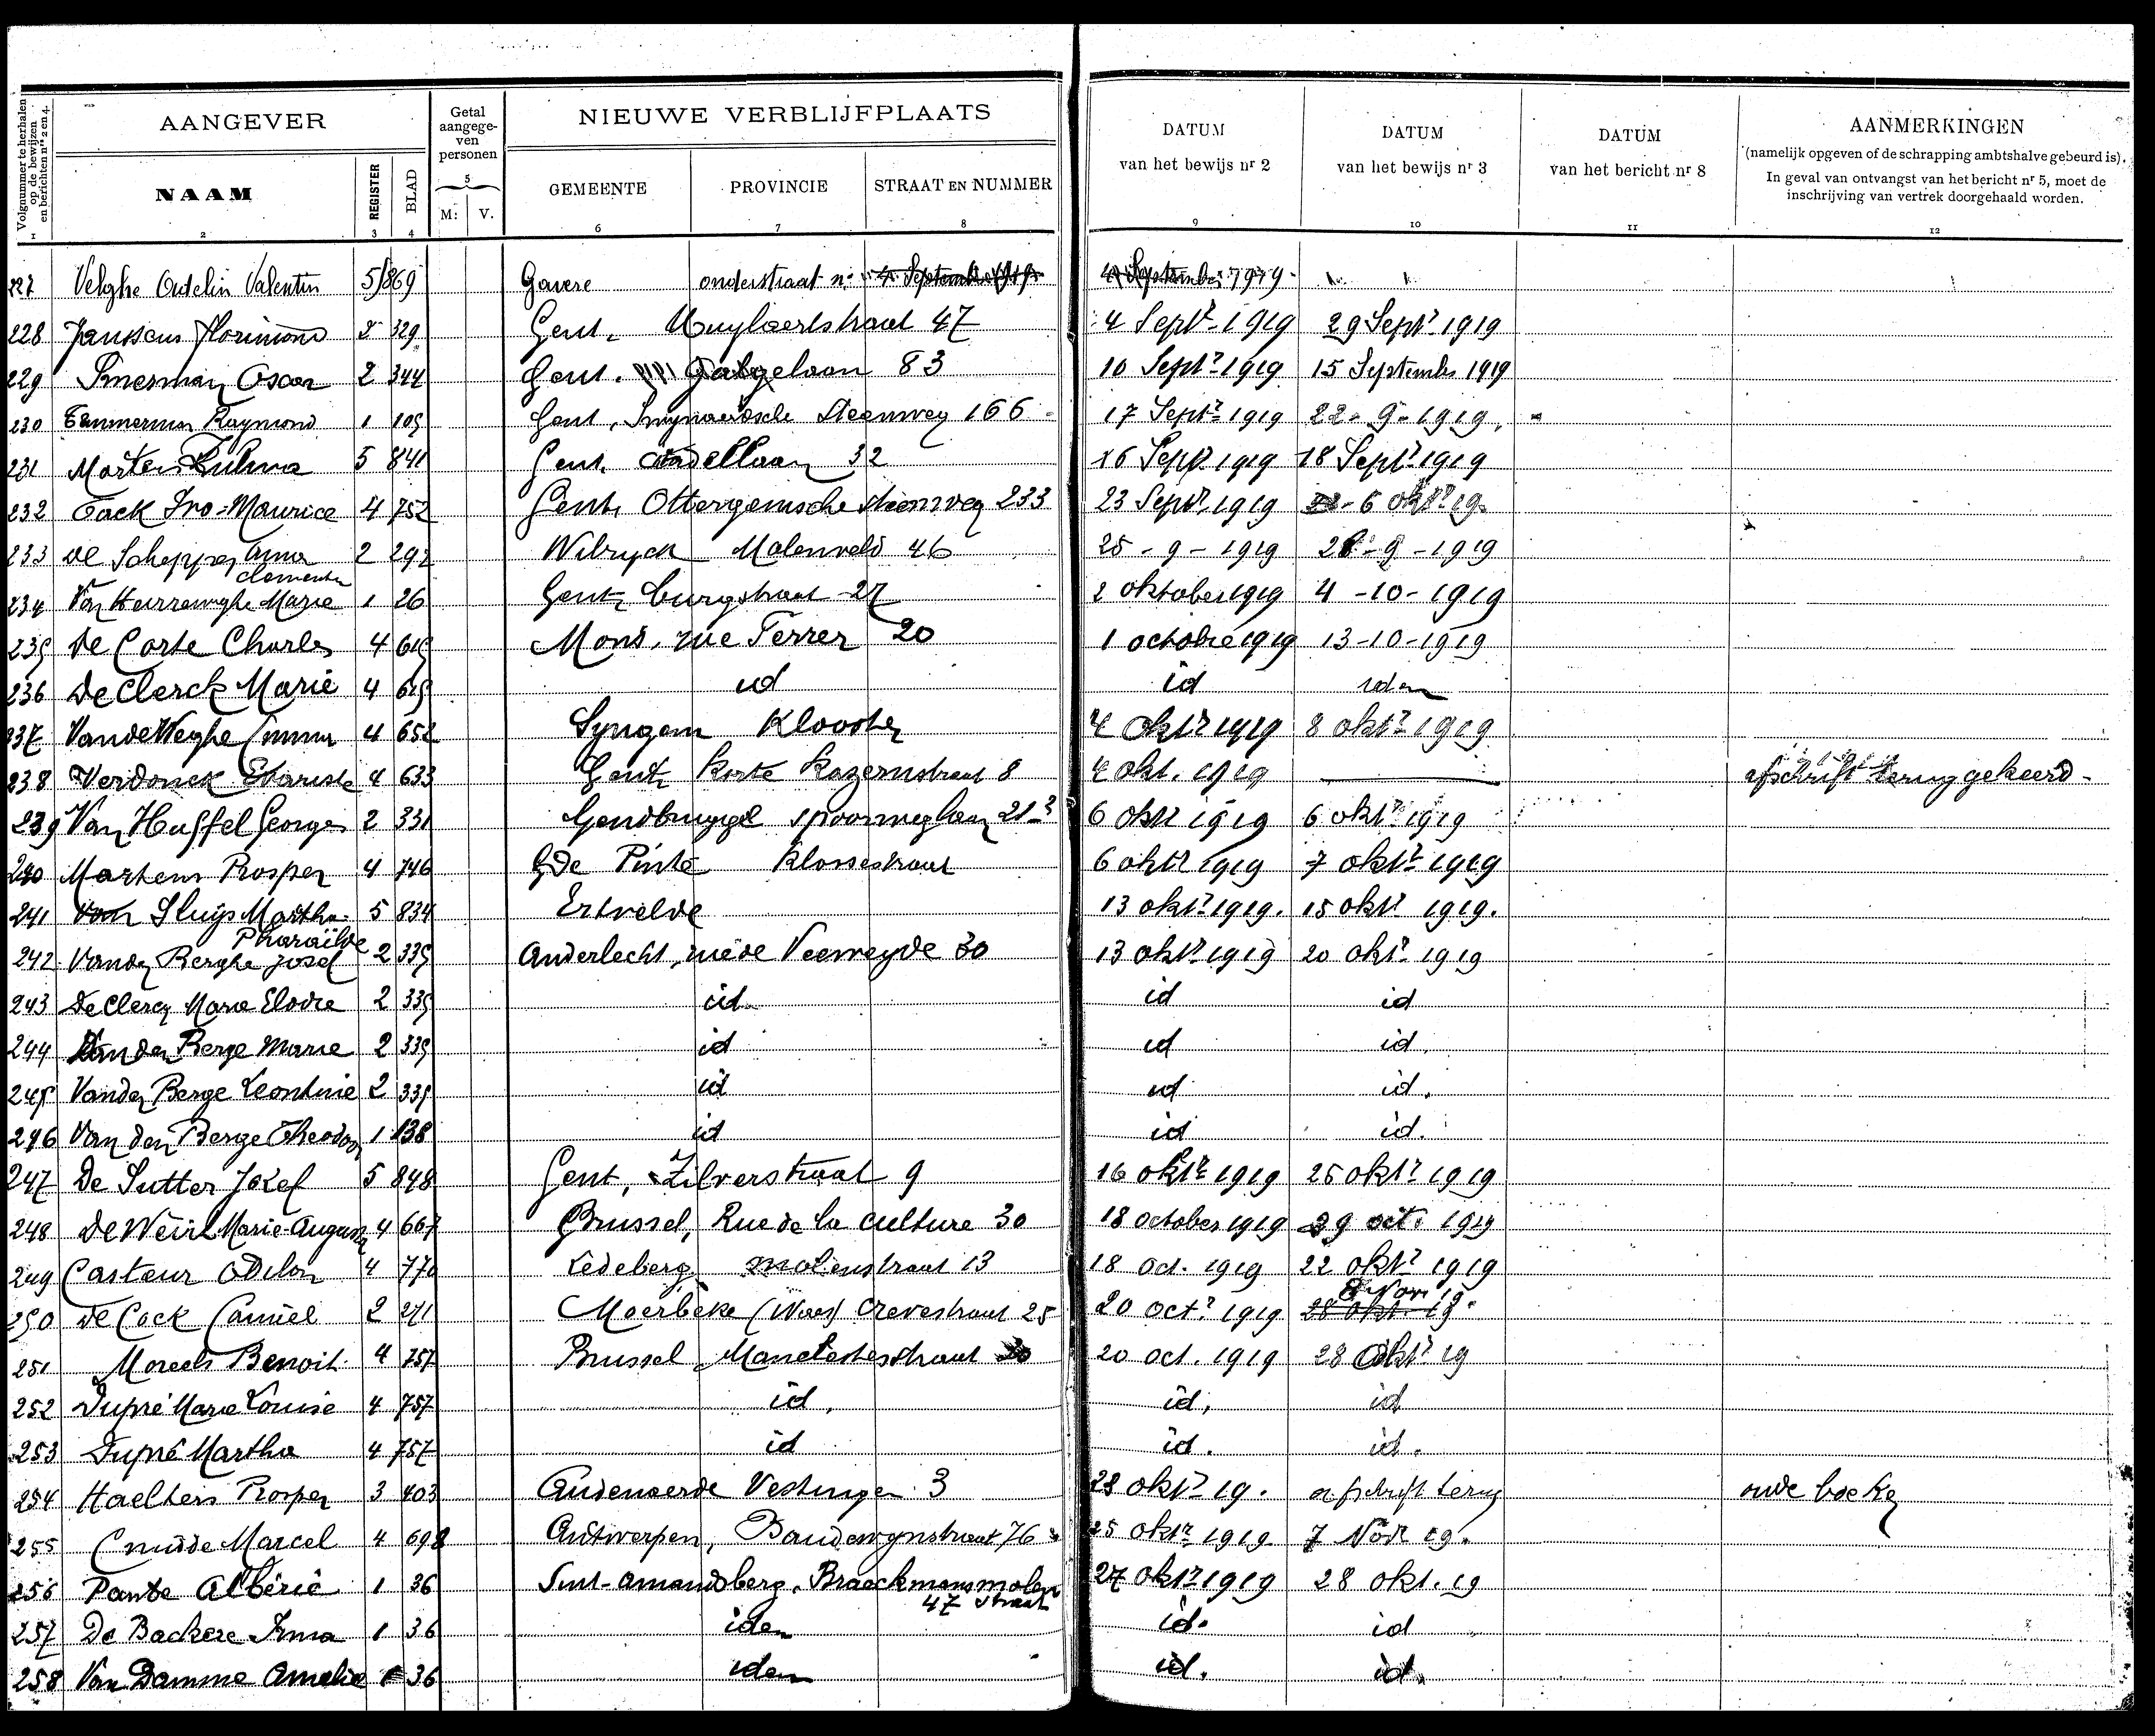 Volgnummer te herhalen op de bewijzen en berichten nrs 2 en 4.
AANGEVER
Getal aangegeven personen
NIEUWE VERBLIJFPLAATS
DATUM van het bewijs nr 2
DATUM van het bewijs nr 3
DATUM van het bericht nr 8
AANMERKINGEN
(namelijk opgeven of de schrapping ambtshalve gebeurd is).
In geval van ontvangst van het bericht nr 5, moet de
inschrijving van vertrek doorgehaald worden.
NAAM REGISTER BLAD M: V. GEMEENTE PROVINCIE STRAAT EN NUMMER
1 2 3 4 5 6 7 8 9 10 11 12
227 Velghe Odelin Valentin 5/869 Gavere onderstraat n: 4 September 1919
228 Janssens Florimond 2 329 Gent, 47 4 Septr 1919 29 Septr 1919
229 Smesman Oscar 2 344 Gent. 83 10 Septr 1919 15 September 1919
230 Temmerman Raymond 1 105 Gent, Steenweg 166 17 Septr 1919 22-9-1919.
231 Martens 5 841 Gent, Citadellaan 32 16 Septr 1919 18 Septr 1919
232 Tack Ivo-Maurice 4 752 Gent, Ottergemsche steenweg 233 23 Septr 1919 6 oktr 19.
233 De Schepper Anna 2 292 Wilryck Molenveld 46 25-9-1919 28-9-1919
Clementia
234 Van Heurzwynghe Marie 1 26 Gent, burgstraat 27 2 oktober 1919 4-10-1919
235 De Corte Charles 4 615 Mons, rue Ferrer 20 1 octobre 1919 13-10-1919
236 De Clerck Marie 4 615 id id idem
237 Vande Weghe Emma 4 652 Syngem Klooster 4 oktr 1919 8 oktr 1919
238 Verdonck Evariste 4 633 Gent, Korte Kazernstraat 8 4 okt. 1919 afschrift teruggekeerd-
239 Van Huffel Georges 2 331 Gendbrugge spoorweglaan 21 6 oktr 1919 6 oktr 1919
240 Martens Prosper 4 746 De Pinte Klossestraat 6 oktr 1919 7 oktr 1919
241 Van Sluijs Martha 5 834 Ertvelde 13 oktr 1919. 15 oktr 1919.
Pharaïlde
242 Vanden Berghe Josef 2 335 Anderlecht, rue de Veeweyde 30 13 oktr 1919 20 oktr 1919
243 De Clercq Marie Elodie 2 335 id id id
244 Vanden Berge Marie 2 335 id id id.
245 Vanden Berge Leontine 2 335 id id id.
246 Van den Berge Theodoor 1 138 id id id.
247 De Sutter Jozef 5 848 Gent, Zilverstraat 9 16 oktr 1919 25 oktr 1919
248 De Weirt Marie-Augusta 4 667 Brussel, Rue de la culture 30 18 october 1919 29 oct. 1919
249 Casteur Odilon 4 770 Ledeberg molenstraat 13 18 oct. 1919 22 oktr 1919
8 Nov 19.
250 De Cock Camiel 2 271 Moerbeke (Waes) Crevestraat 25 20 octr 1919 28 okt. 19
251 Morels Benoit 4 757 Brussel Manchesterstraat 30 20 oct. 1919 28 oktr 19
252 Dupré Marie Louise 4 757 id, id, id
253 Dupré Martha 4 757 id id. id.
254 Haelters Prosper 3 403 Audenaerde Vestingen 3 28 oktr 19. afschrift terug
255 Cnudde Marcel 4 698 Antwerpen, Baudewynstraat 76 25 oktr 1919 7 Novr 19.
256 Pante Albéric 1 36 Sint-Amandsberg, Braeckmansmolen 27 oktr 1919 28 okt. 19
47 straat
257 De Backere Irma 1 36 idem id. id
258 Van Damme Amelie 1 36 idem id. id.